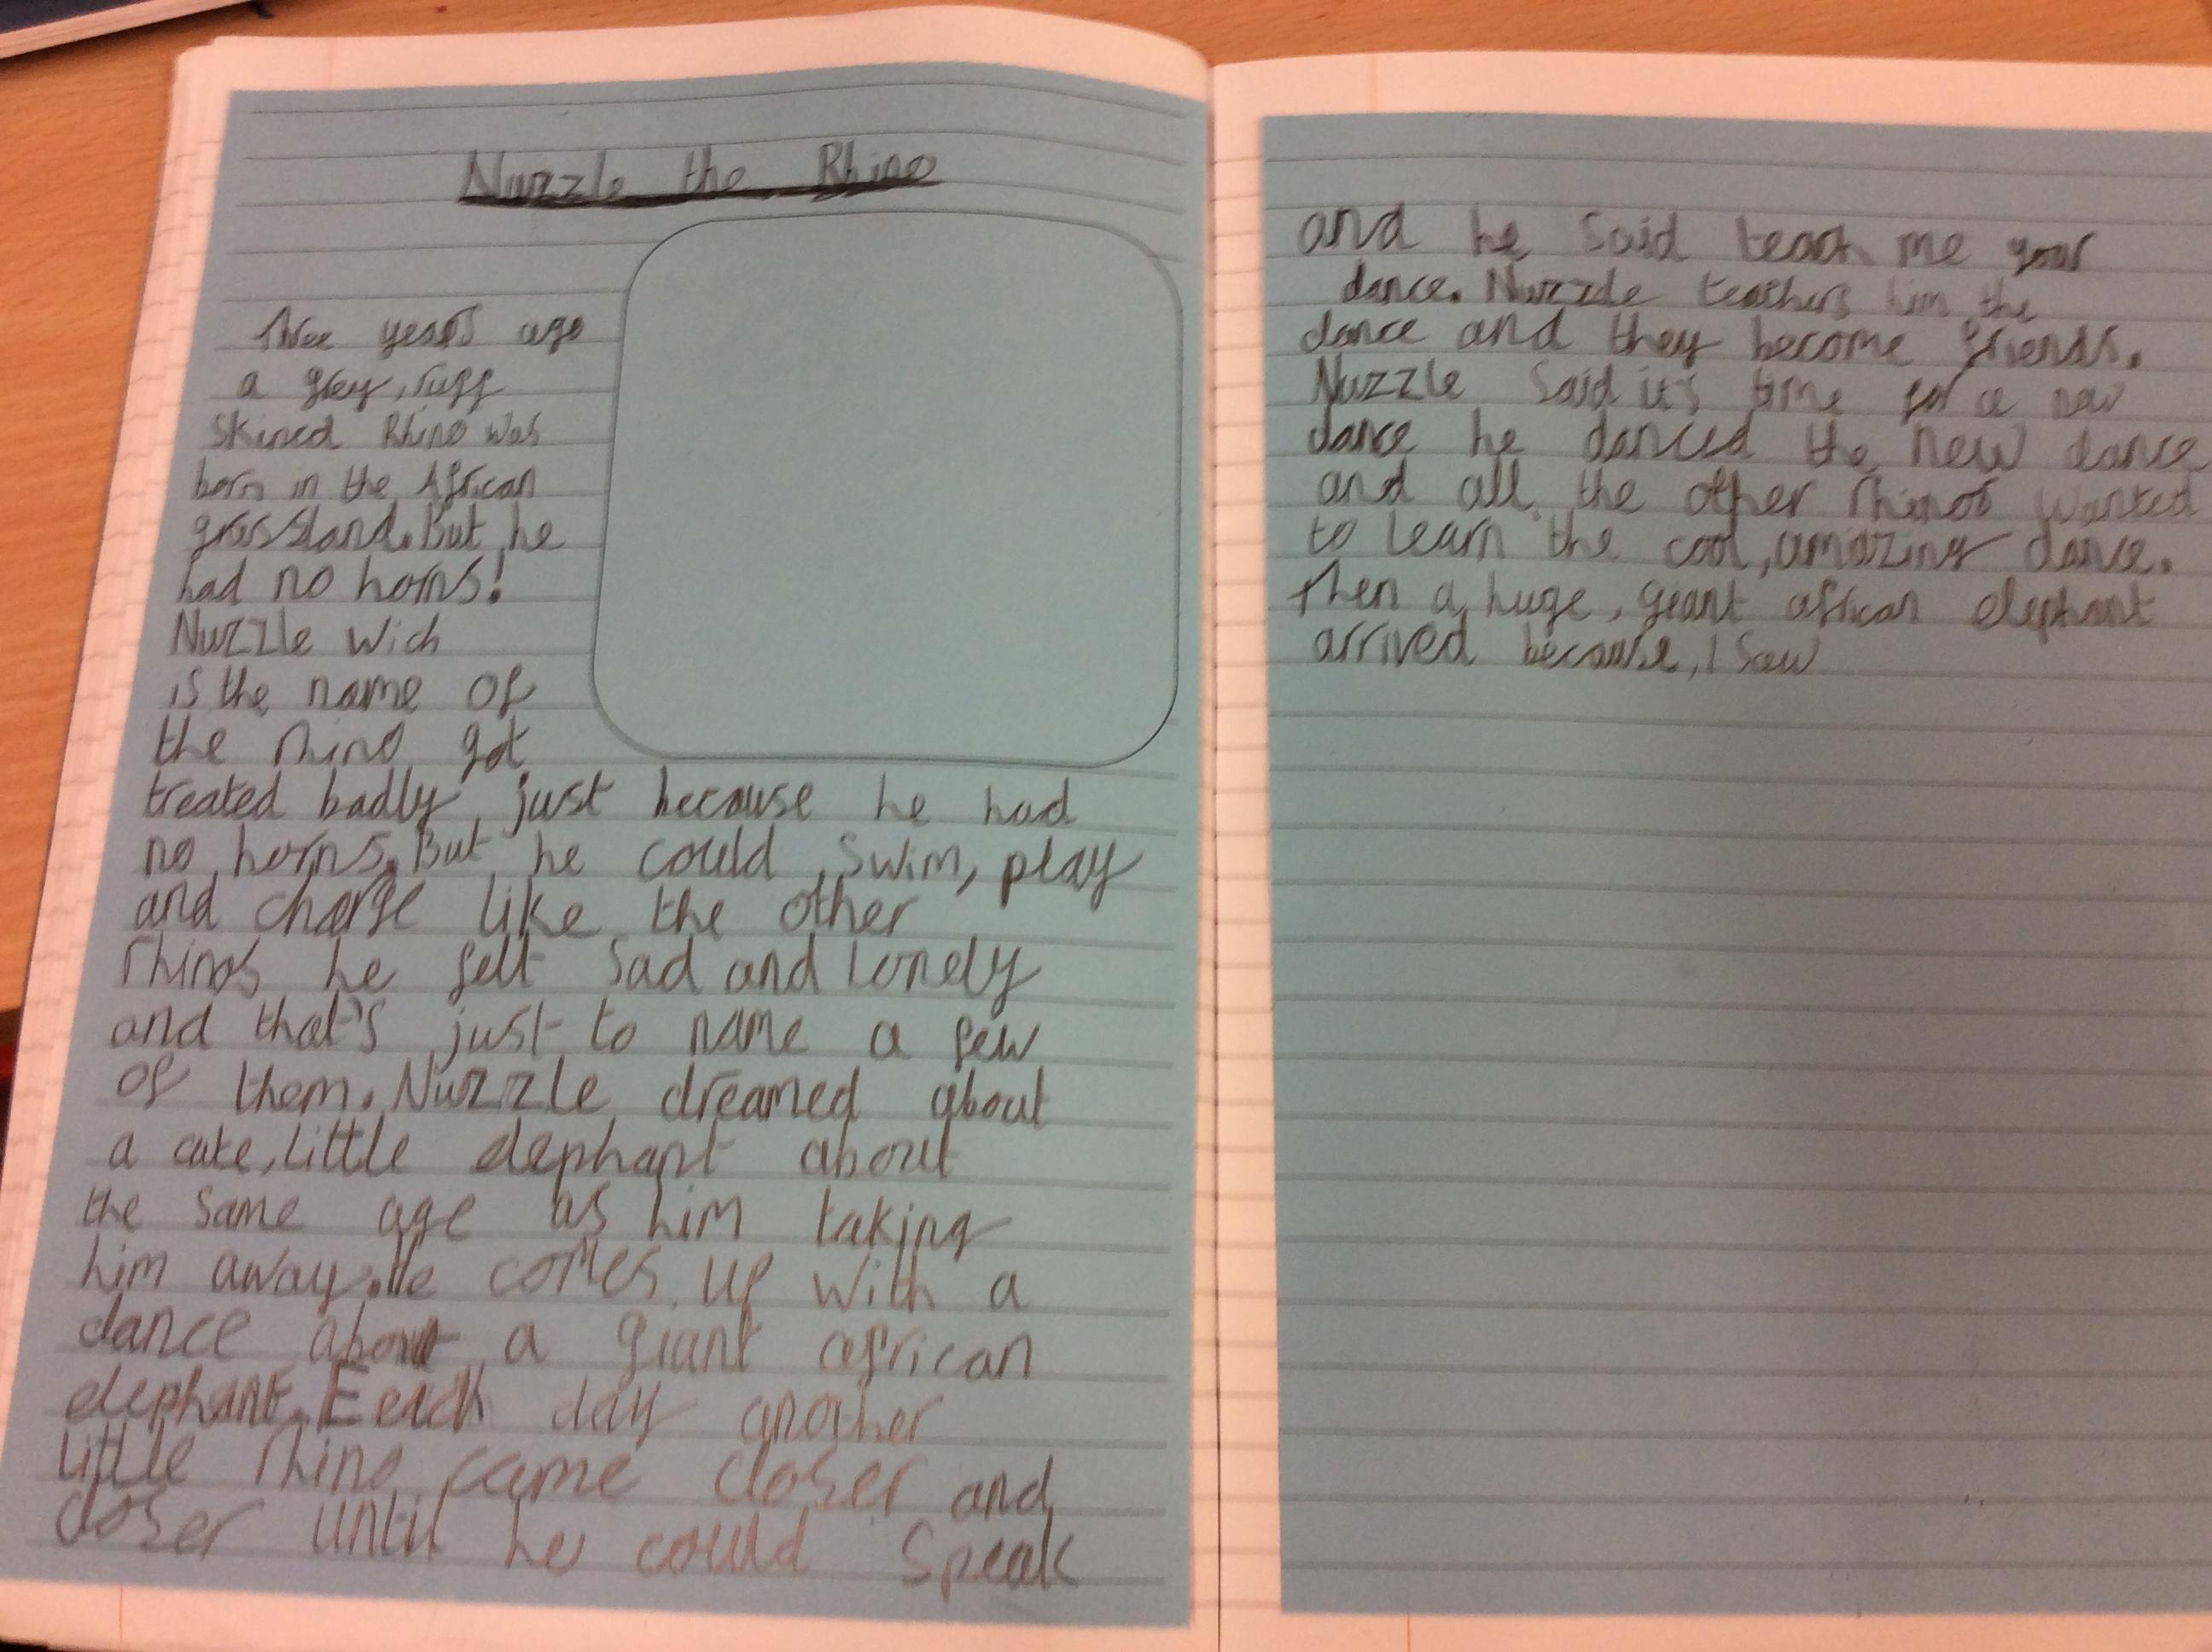 Nuzzle the Rhino
Three years ago
a grey, ruff
skined Rhino was
born in the African
grassland. But he
had no horns!
Nuzzle wich
is the name of
the rhino got
treated badly just because he had
no horns. But he could swim, play
and charge like the other
rhinos he felt sad and lonely
and that's just to name a few
of them. Nuzzle dreamed about
a cute, little elephant about
the same age as him taking
him away. He comes up with a
dance about a giant african
elephant. Eeach day another
little rhino came closer and
closer until he could speak
and he said teach me your
dance. Nuzzle teachers him the
dance and they become friends.
Nuzzle said it's time for a new
dance he danced the new dance
and all the other rhinos wanted
to learn the cool, amazing dance.
Then a huge, geant african elephant
arrived because, I saw